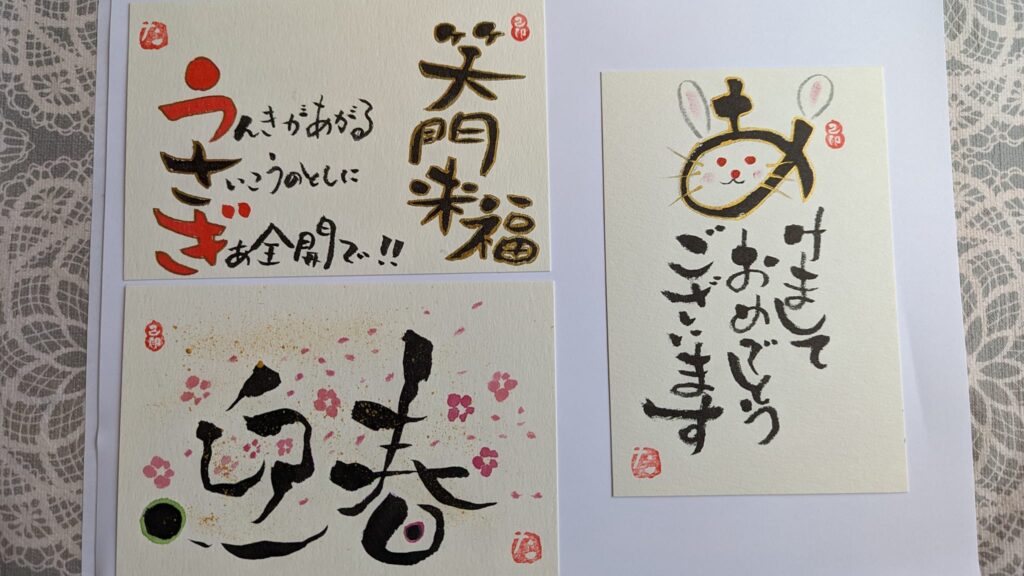 笑門来福
うんきがあがる
さいこうのとしに
ぎあ全開で!!
迎春
あ
けまして
おめでとう
ございます